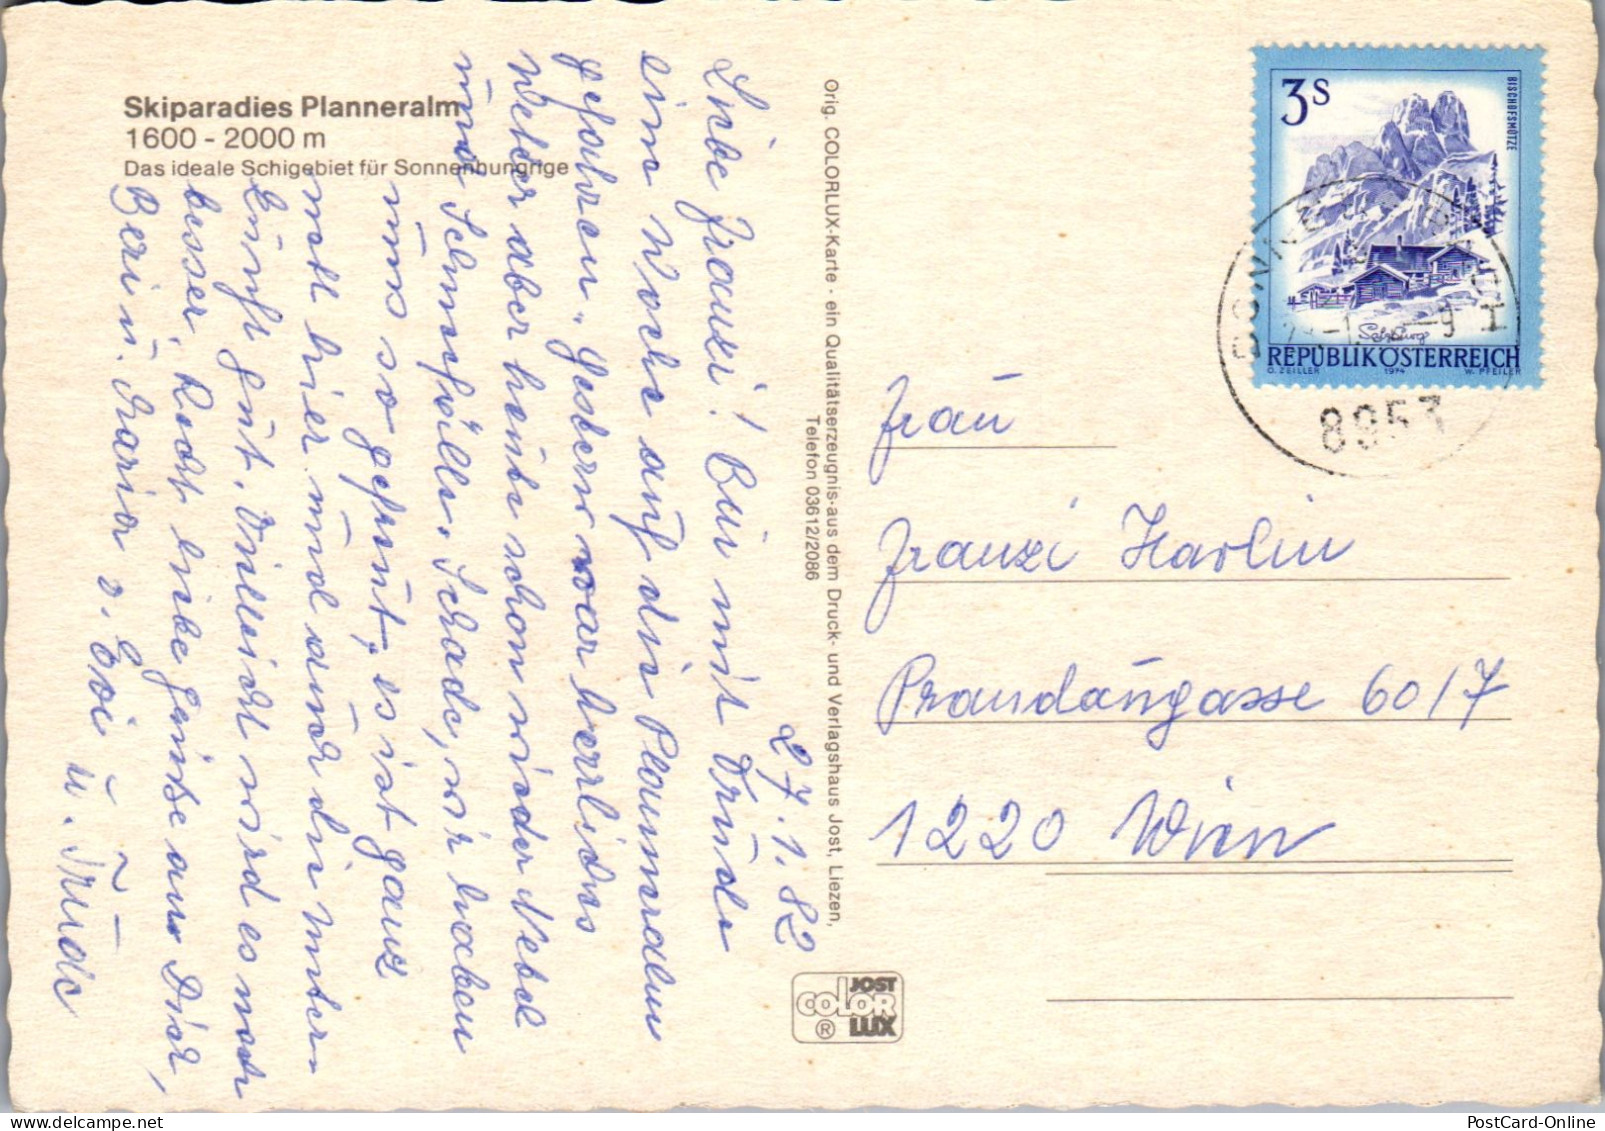 Skiparadies Planneralm
1600 - 2000 m
Das ideale Schigebiet für Sonnenhungrige
27.1.82
Liebe Franzi! Bin mit Trude
eine Woche auf die Planneralm
gefahren. Gestern war herrliches
Wetter aber heute schon wieder Nebel
und Schneefälle. Schade, wir haben
uns so gefreut, es ist ganz
nett hier und auch die Unter-
kunft gut. Vielleicht wird es noch
besser. Recht liebe Grüße an Dich,
u. Maria v. Evi u. Trude
Orig. COLORLUX-Karte · ein Qualitätserzeugnis-aus dem Druck- und Verlagshaus Jost, Liezen,
Telefon 03612/2086
JOST
COLOR
LUX
®
3S
BISCHOFSMÜTZE
Salzburg
REPUBLIK ÖSTERREICH
O. ZEILLER 1974 W. PFEILER
8953
Frau
Franzi Karlin
Prandaugasse 60/7
1220 Wien
PostCard-Online